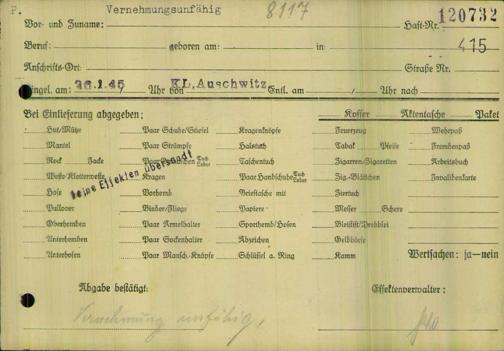 P. Vernehmungsunfähig 8117
Vor- und Zuname: Haft-Nr. 120732
Beruf: geboren am: in: 415
Anschrifts-Ort: Straße Nr.
Eingel. am: 26.1.45 Uhr von KL. Auschwitz Entl. am Uhr nach
Bei Einlieferung abgegeben: Koffer Aktentasche Paket
Hut/Mütze Paar Schuhe/Stiefel Kragenknöpfe Feuerzeug Wehrpaß
Mantel Paar Strümpfe Halstuch Tabak Pfeife Fremdenpaß
Rock Jacke Paar Tuch Leder Taschentuch Zigarren/Zigaretten Arbeitsbuch
Weste/Kletterweste Kragen Paar Handschuhe Tuch Leder Zig.-Blättchen Invalidenkarte
keine Effekten übersandt
Hose Vorhemd Brieftasche mit Ziertuch
Pullover Binder/Fliege Papiere Messer Schere
Oberhemden Paar Ärmelhalter Sporthemd/Hosen Bleistift/Drehblei
Unterhemden Paar Sockenhalter Abzeichen Geldbörse
Unterhosen Paar Mansch.-Knöpfe Schlüssel a. Ring Kamm Wertsachen: ja—nein
Abgabe bestätigt: Effektenverwalter:
Vernehmung unfähig,